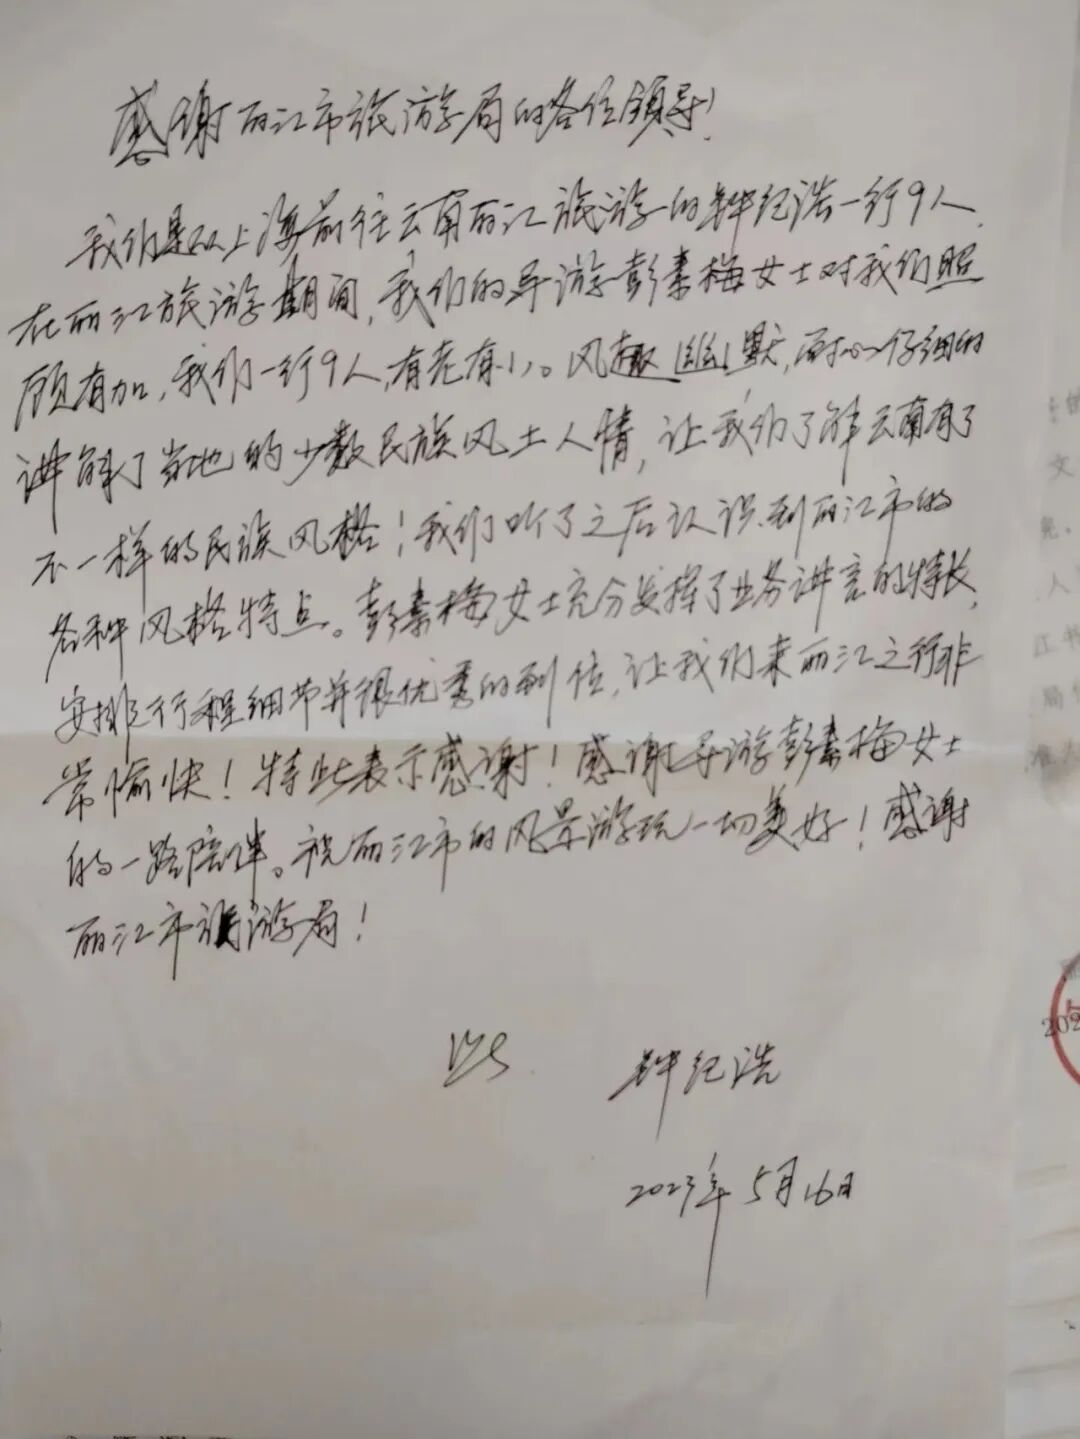 感谢丽江市旅游局的各位领导！
我们是从上海前往云南丽江旅游的钟纪浩一行9人.
在丽江旅游期间,我们的导游彭素梅女士对我们照
顾有加,我们一行9人,有老有小。风趣幽默,耐心仔细的
讲解了当地的少数民族风土人情,让我们了解云南有了
不一样的民族风格！我们听了之后认识到丽江市的
各种风格特点。彭素梅女士充分发挥了业务讲言的特长,
安排行程细节并很优秀的到位,让我们来丽江之行非
常愉快！特此表示感谢！感谢导游彭素梅女士
的一路陪伴。祝丽江市的风景游玩一切美好！感谢
丽江市旅游局！
钟纪浩
2023年5月16日
文
人
局
202